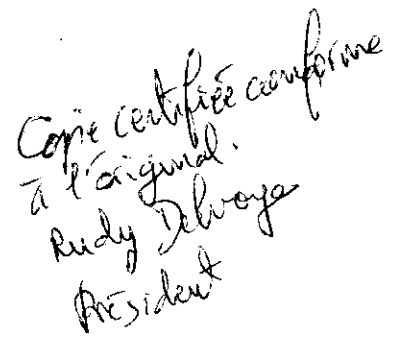 Copie certifiée conforme
à l'original.
Rudy Delvoye
Président